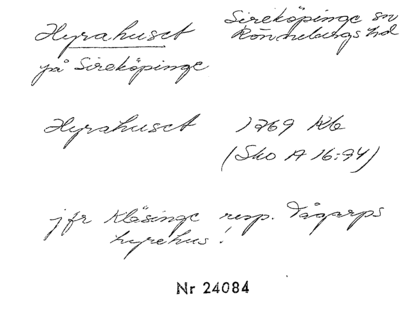 Hyrahuset
på Sireköpinge
Sireköpinge sn
Rönnebergs hd
Hyrahuset 1769 Kb
(Sko A 16:94)
jfr Klåsinge resp. Tågarps
hyrehus!
Nr 24084